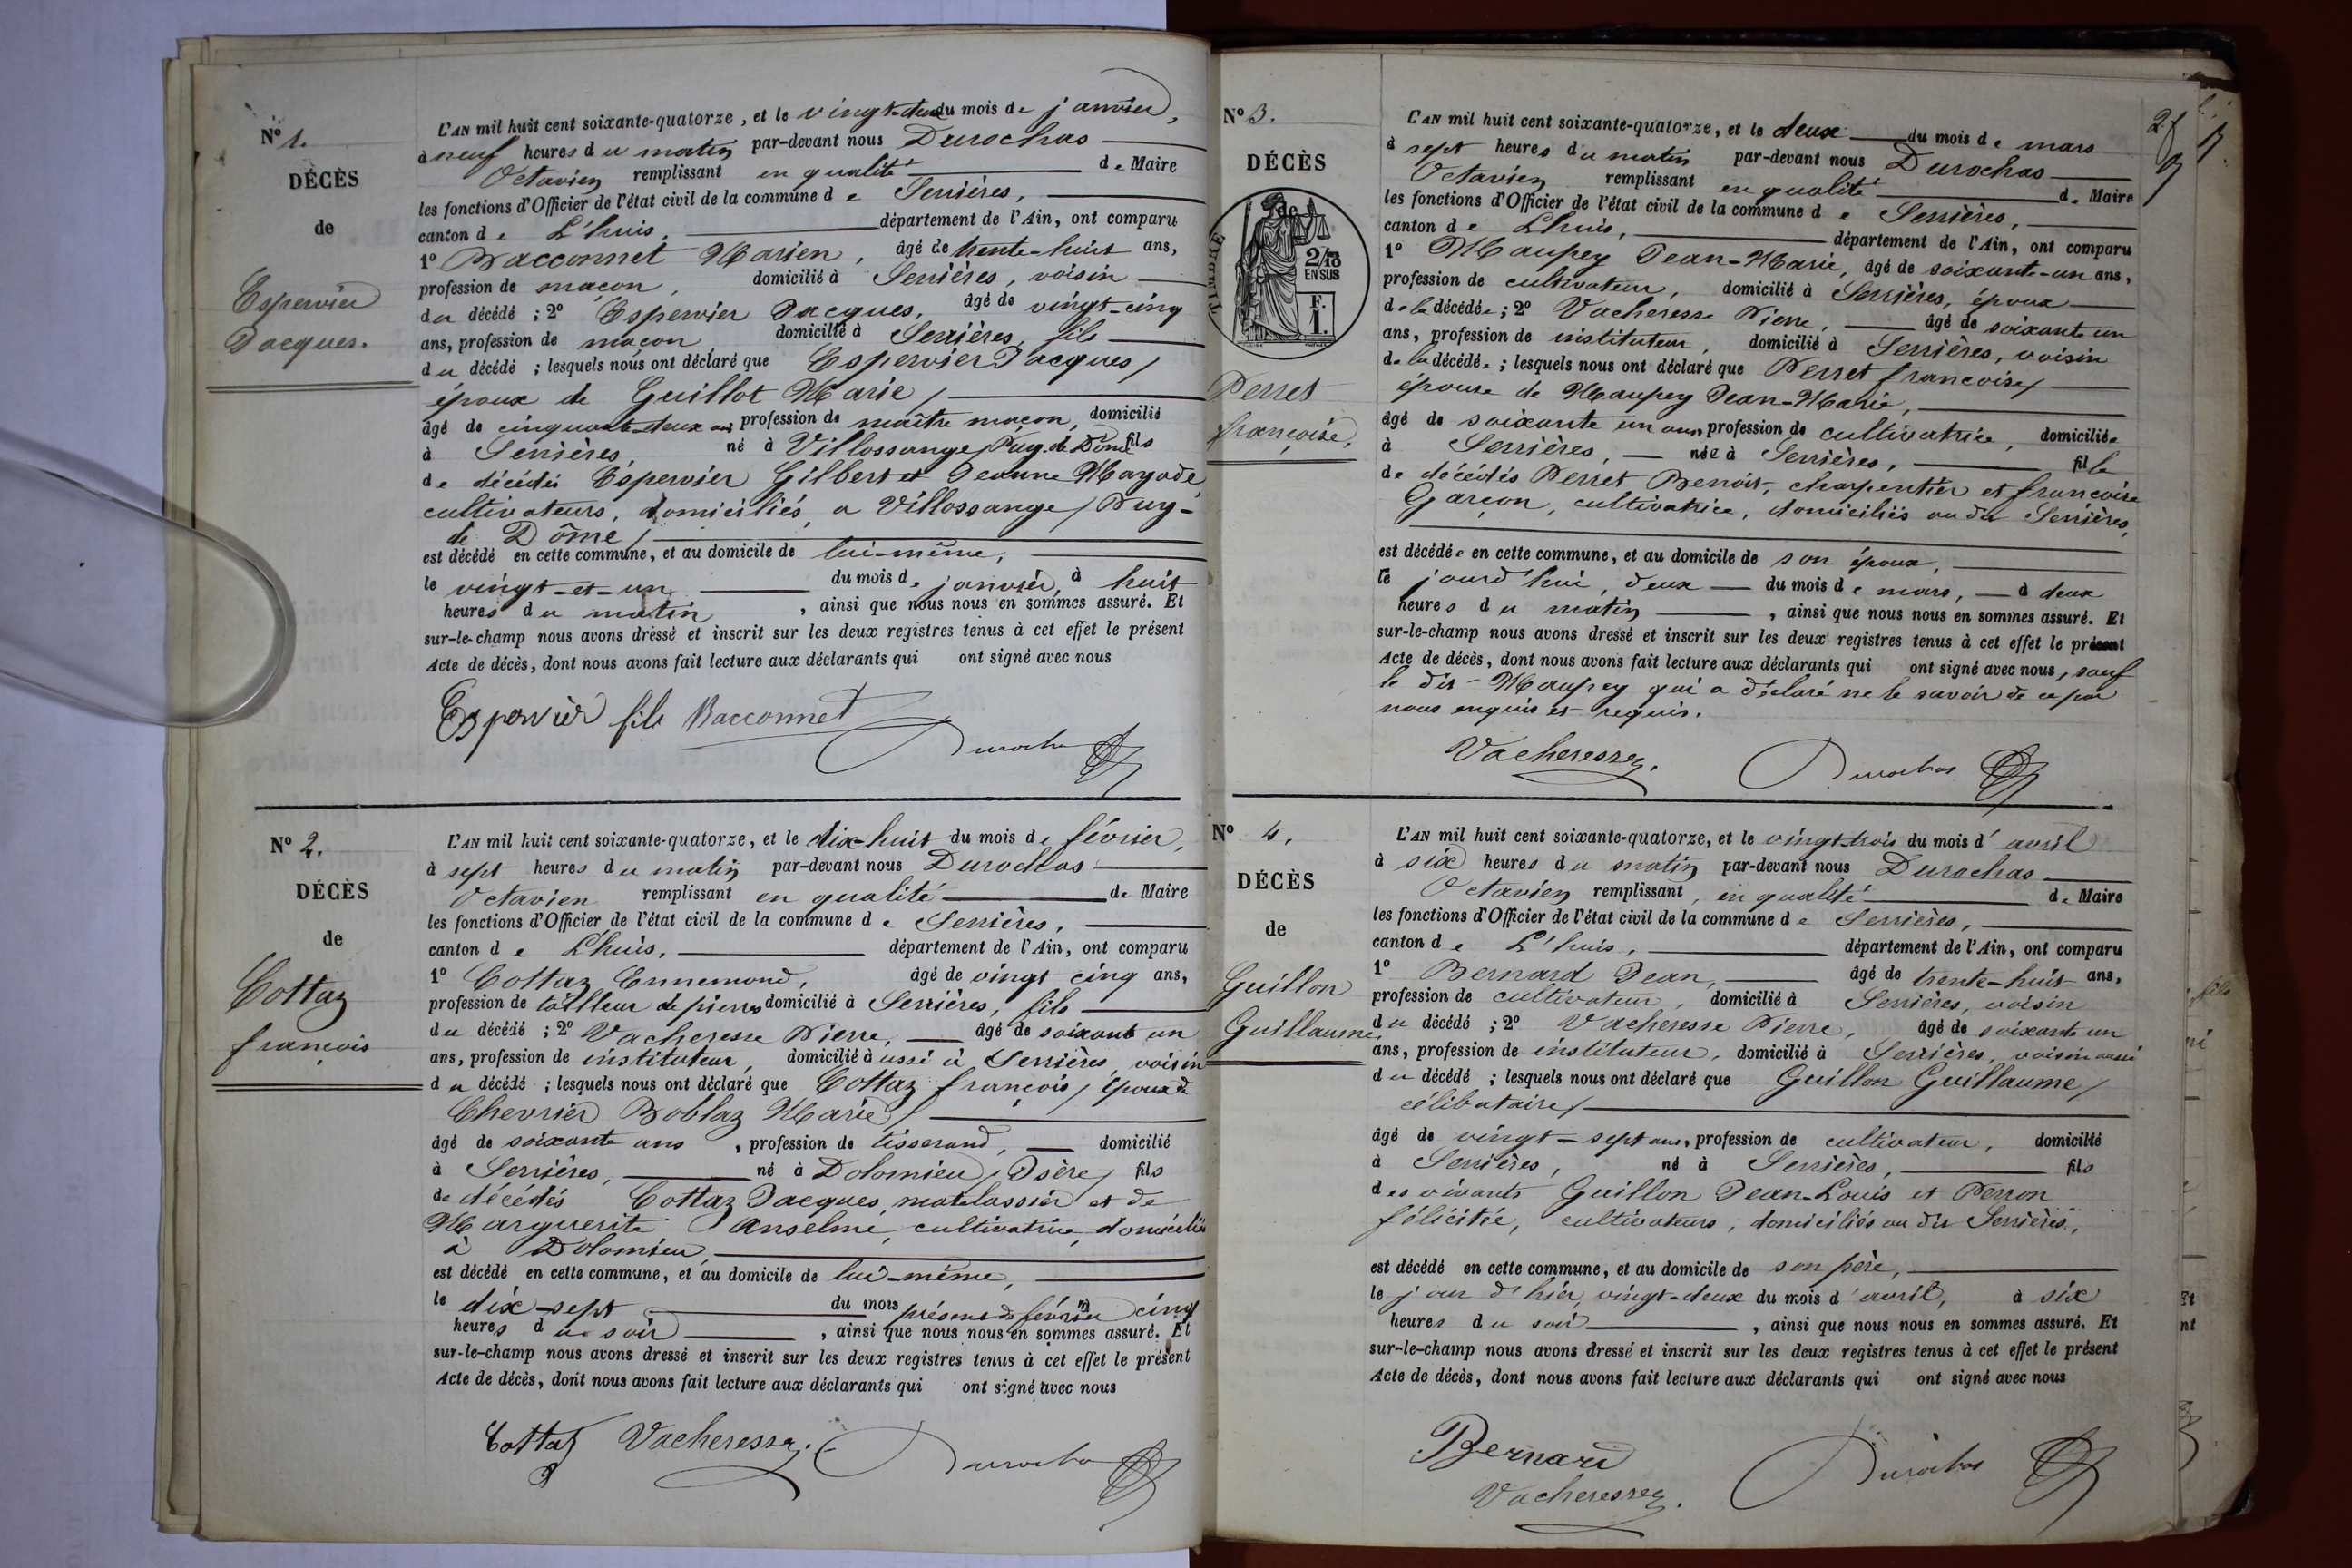 N° 1.
DÉCÈS
de
Espervier
Jacques.
L'AN mil huit cent soixante-quatorze, et le vingt-deux du mois de janvier,
à neuf heures du matin par-devant nous Durochas
Octavien remplissant en qualité de Maire
les fonctions d'Officier de l'état civil de la commune de Serrières,
canton de L'huis, département de l'Ain, ont comparu
1° Bacconnet Marien, âgé de trente-huit ans,
profession de maçon, domicilié à Serrières, voisin
du décédé ; 2° Espervier Jacques, âgé de vingt-cinq
ans, profession de maçon domicilié à Serrières, fils
du décédé ; lesquels nous ont déclaré que Espervier Jacques,
époux de Guillot Marie,
âgé de cinquante-deux ans profession de maître maçon, domicilié
à Serrières, né à Villossange, Puy de Dôme fils
de décédés Espervier Gilbert et Jeanne Mayade,
cultivateurs, domiciliés a Villossange, Puy-
de Dôme,
est décédé en cette commune, et au domicile de lui-même,
le vingt-et-un du mois de janvier, à huit
heures du matin, ainsi que nous nous en sommes assuré. Et
sur-le-champ nous avons dressé et inscrit sur les deux registres tenus à cet effet le présent
Acte de décès, dont nous avons fait lecture aux déclarants qui ont signé avec nous
Espervier fils Bacconnet
Durochas
N° 2.
DÉCÈS
de
Cottaz
françois
L'AN mil huit cent soixante-quatorze, et le dix-huit du mois de février,
à sept heures du matin par-devant nous Durochas
Octavien remplissant en qualité de Maire
les fonctions d'Officier de l'état civil de la commune de Serrières,
canton de Lhuis, département de l'Ain, ont comparu
1° Cottaz Ennemond, âgé de vingt cinq ans,
profession de tailleur de pierres domicilié à Serrières, fils
du décédé ; 2° Vacheresse Pierre, âgé de soixante un
ans, profession de instituteur, domicilié à aussi à Serrières, voisin
du décédé ; lesquels nous ont déclaré que Cottaz françois, époux de
Chevrier Boblaz Marie,
âgé de soixante ans, profession de tisserand, domicilié
à Serrières, né à Dolomieu, Isère, fils
de décédés Cottaz Jacques, matelassier et de
Marguerite Anselme, cultivatrice, domiciliés
à Dolomieu
est décédé en cette commune, et au domicile de lui-même,
le dix-sept du mois présent de février à cinq
heures du soir, ainsi que nous nous en sommes assuré. Et
sur-le-champ nous avons dressé et inscrit sur les deux registres tenus à cet effet le présent
Acte de décès, dont nous avons fait lecture aux déclarants qui ont signé avec nous
Cottaz Vacheresse.
Durochas
N° 3.
DÉCÈS
de
2/10
EN SUS
F.
1.
Perret
françoise,
2 f
L'AN mil huit cent soixante-quatorze, et le deux du mois de mars
à sept heures du matin par-devant nous Durochas
Octavien remplissant en qualité de Maire
les fonctions d'Officier de l'état civil de la commune de Serrières,
canton de Lhuis, département de l'Ain, ont comparu
1° Maupey Jean-Marie, âgé de soixante-un ans,
profession de cultivateur, domicilié à Serrières, époux
de la décédée ; 2° Vacheresse Pierre, âgé de soixante un
ans, profession de instituteur, domicilié à Serrières, voisin
de la décédée ; lesquels nous ont déclaré que Perret françoise,
épouse de Maupey Jean-Marie,
âgé de soixante un ans, profession de cultivatrice, domiciliée
à Serrières, née à Serrières, fille
de décédés Perret Benoit, charpentier et françoise
Garçon, cultivatrice, domiciliés au dit Serrières,
est décédée en cette commune, et au domicile de son époux,
le jourd'hui, deux du mois de mars, à deux
heures du matin, ainsi que nous nous en sommes assuré. Et
sur-le-champ nous avons dressé et inscrit sur les deux registres tenus à cet effet le présent
Acte de décès, dont nous avons fait lecture aux déclarants qui ont signé avec nous, sauf
le dit Maupey qui a déclaré ne le savoir de ce par
nous enquis et requis.
Vacheresse.
Durochas
N° 4.
DÉCÈS
de
Guillon
Guillaume,
L'AN mil huit cent soixante-quatorze, et le vingt-trois du mois d'avril
à six heures du matin par-devant nous Durochas
Octavien remplissant, en qualité de Maire
les fonctions d'Officier de l'état civil de la commune de Serrières,
canton de L'huis, département de l'Ain, ont comparu
1° Bernard Jean, âgé de trente-huit ans,
profession de cultivateur, domicilié à Serrières, voisin
du décédé ; 2° Vacheresse Pierre, âgé de soixante un
ans, profession de instituteur, domicilié à Serrières, voisin aussi
du décédé ; lesquels nous ont déclaré que Guillon Guillaume,
célibataire,
âgé de vingt-sept ans, profession de cultivateur, domicilié
à Serrières, né à Serrières, fils
des vivants Guillon Jean-Louis et Perron
félicitée, cultivateurs, domiciliés au dit Serrières,
est décédé en cette commune, et au domicile de son père,
le jour d'hier, vingt-deux du mois d'avril, à six
heures du soir, ainsi que nous nous en sommes assuré. Et
sur-le-champ nous avons dressé et inscrit sur les deux registres tenus à cet effet le présent
Acte de décès, dont nous avons fait lecture aux déclarants qui ont signé avec nous
Bernard
Vacheresse.
Durochas